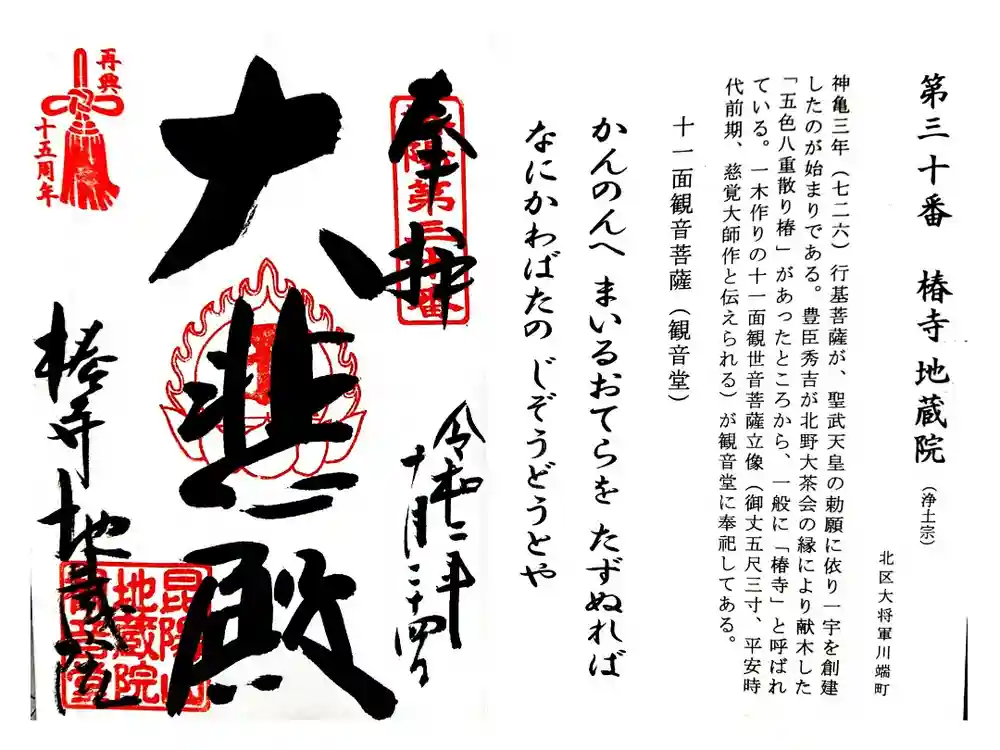 第三十番 椿寺地蔵院（浄土宗）
北区大将軍川端町
神亀三年（七二六）行基菩薩が、聖武天皇の勅願に依り一宇を創建
したのが始まりである。豊臣秀吉が北野大茶会の縁により献木した
「五色八重散り椿」があったところから、一般に「椿寺」と呼ばれ
ている。一木作りの十一面観世音菩薩立像（御丈五尺三寸、平安時
代前期、慈覚大師作と伝えられる）が観音堂に奉祀してある。
十一面観音菩薩（観音堂）
かんのんへ まいるおてらを たずぬれば
なにかわばたの じぞうどうとや
奉拝
洛陽第三十番
令和二年
十月二十四日
大悲殿
椿寺地蔵院
昆陽山
地蔵院
観音堂
再興
十五周年